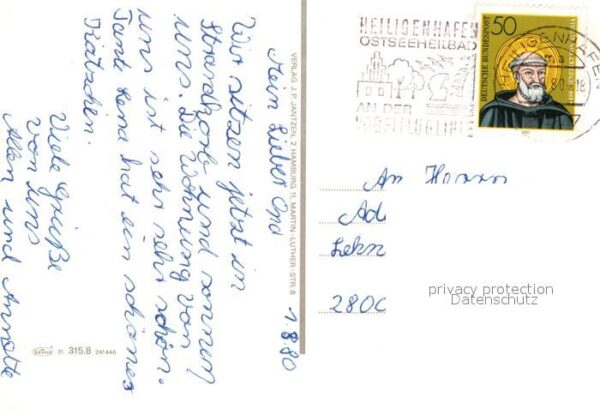 1.8.80
Mein Lieber Ond
Wir sitzen jetzt im
Strandkorb und sonnen
uns. Die Wohnung von
uns ist sehr sehr schön.
Tant Lena hat ein schönes
Kätzchen.
Viele Grüße
von uns
Allen und Annette
VERLAG J. P. JANTZEN, 2 HAMBURG 11, MARTIN-LUTHER-STR. 8
21 315.8
HEILIGENHAFEN
OSTSEEHEILBAD
AN DER
VOGELFLUGLINIE
50
DEUTSCHE BUNDESPOST
HEILIGENHAFEN
An Herrn
Ad
Lekn
280C
privacy protection
Datenschutz